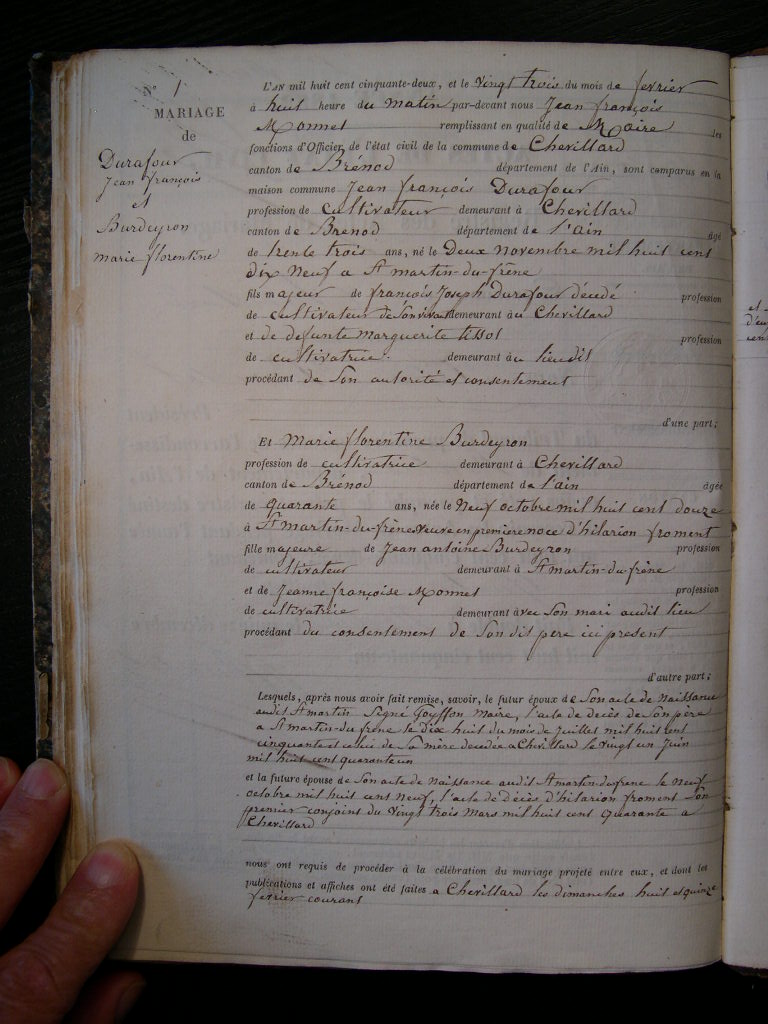 N° 1
MARIAGE
de
Durafour
Jean françois
et
Burdeyron
marie florentine
L'AN mil huit cent cinquante-deux, et le Vingt trois du mois de fevrier
à huit heure du matin par-devant nous Jean françois
Monnet remplissant en qualité de Maire les
fonctions d'Officier de l'état civil de la commune de Chevillard
canton de Brénod département de l'Ain, sont comparus en la
maison commune Jean françois Durafour
profession de cultivateur demeurant à Chevillard
canton de Brenod département de l'ain âgé
de trente trois ans, né le Deux novembre mil huit cent
dix Neuf a St martin-du-frêne
fils majeur de françois Joseph Durafour décédé profession
de cultivateur de Son vivant demeurant à u Chevillard
et de defunte marguerite tissot profession
de cultivatrice. demeurant à u lieudit
procédant de Son autorité et consentement
d'une part;
Et Marie florentine Burdeyron
profession de cultivatrice demeurant à Chevillard
canton de Brénod département de l'ain âgée
de quarante ans, née le Neuf octobre mil huit cent douze
à St martin-du-frêne veuve en premiere noce d'hilarion froment
fille majeure de Jean antoine Burdeyron profession
de cultivateur demeurant à St martin-du-frêne
et de Jeanne françoise Monnet profession
de cultivatrice demeurant avec Son mari audit lieu
procédant du consentement de Son dit père ici present
d'autre part;
Lesquels, après nous avoir fait remise, savoir, le futur époux de Son acte de Naissance
audit St martin Signé Goyffon Maire, l'acte de décès de Son père
a St martin-du frêne le dix huit du mois de Juillet mil huit cent
cinquante et celui de Sa mère decedée a Chevillard le vingt un Juin
mil huit cent quarante un
et la future épouse de Son acte de Naissance audit St martin-du-frene le Neuf
octobre mil huit cent Neuf, l'acte de décès d'hilarion froment Son
premier conjoint du Vingt trois Mars mil huit cent quarante a
Chevillard
nous ont requis de procéder à la célébration du mariage projeté entre eux, et dont les
publications et affiches ont été faites a Chevillard les dimanches huit et quinze
fevrier courant